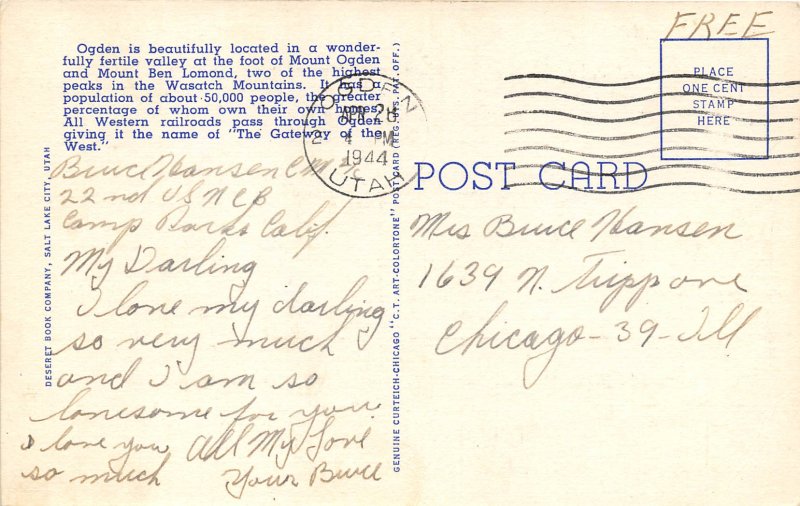 Ogden is beautifully located in a wonder-
fully fertile valley at the foot of Mount Ogden
and Mount Ben Lomond, two of the highest
peaks in the Wasatch Mountains. It has a
population of about 50,000 people, the greater
percentage of whom own their own homes.
All Western railroads pass through Ogden
giving it the name of "The Gateway of the
West."
Bruce Hansen C.M.
22nd USNCB
Camp Parks Calif.
My Darling
I love my darling
so very much
and I am so
lonesome for you.
I love you
so much
All My Love
Your Bruce
DESERET BOOK COMPANY, SALT LAKE CITY, UTAH
GENUINE CURTEICH-CHICAGO "C.T. ART-COLORTONE" POST CARD (REG. U.S. PAT. OFF.)
OGDEN
28
PM
1944
UTAH
FREE
PLACE
ONE CENT
STAMP
HERE
POST CARD
Mrs Bruce Hansen
1639 N. Tripp ave
Chicago-39-Ill